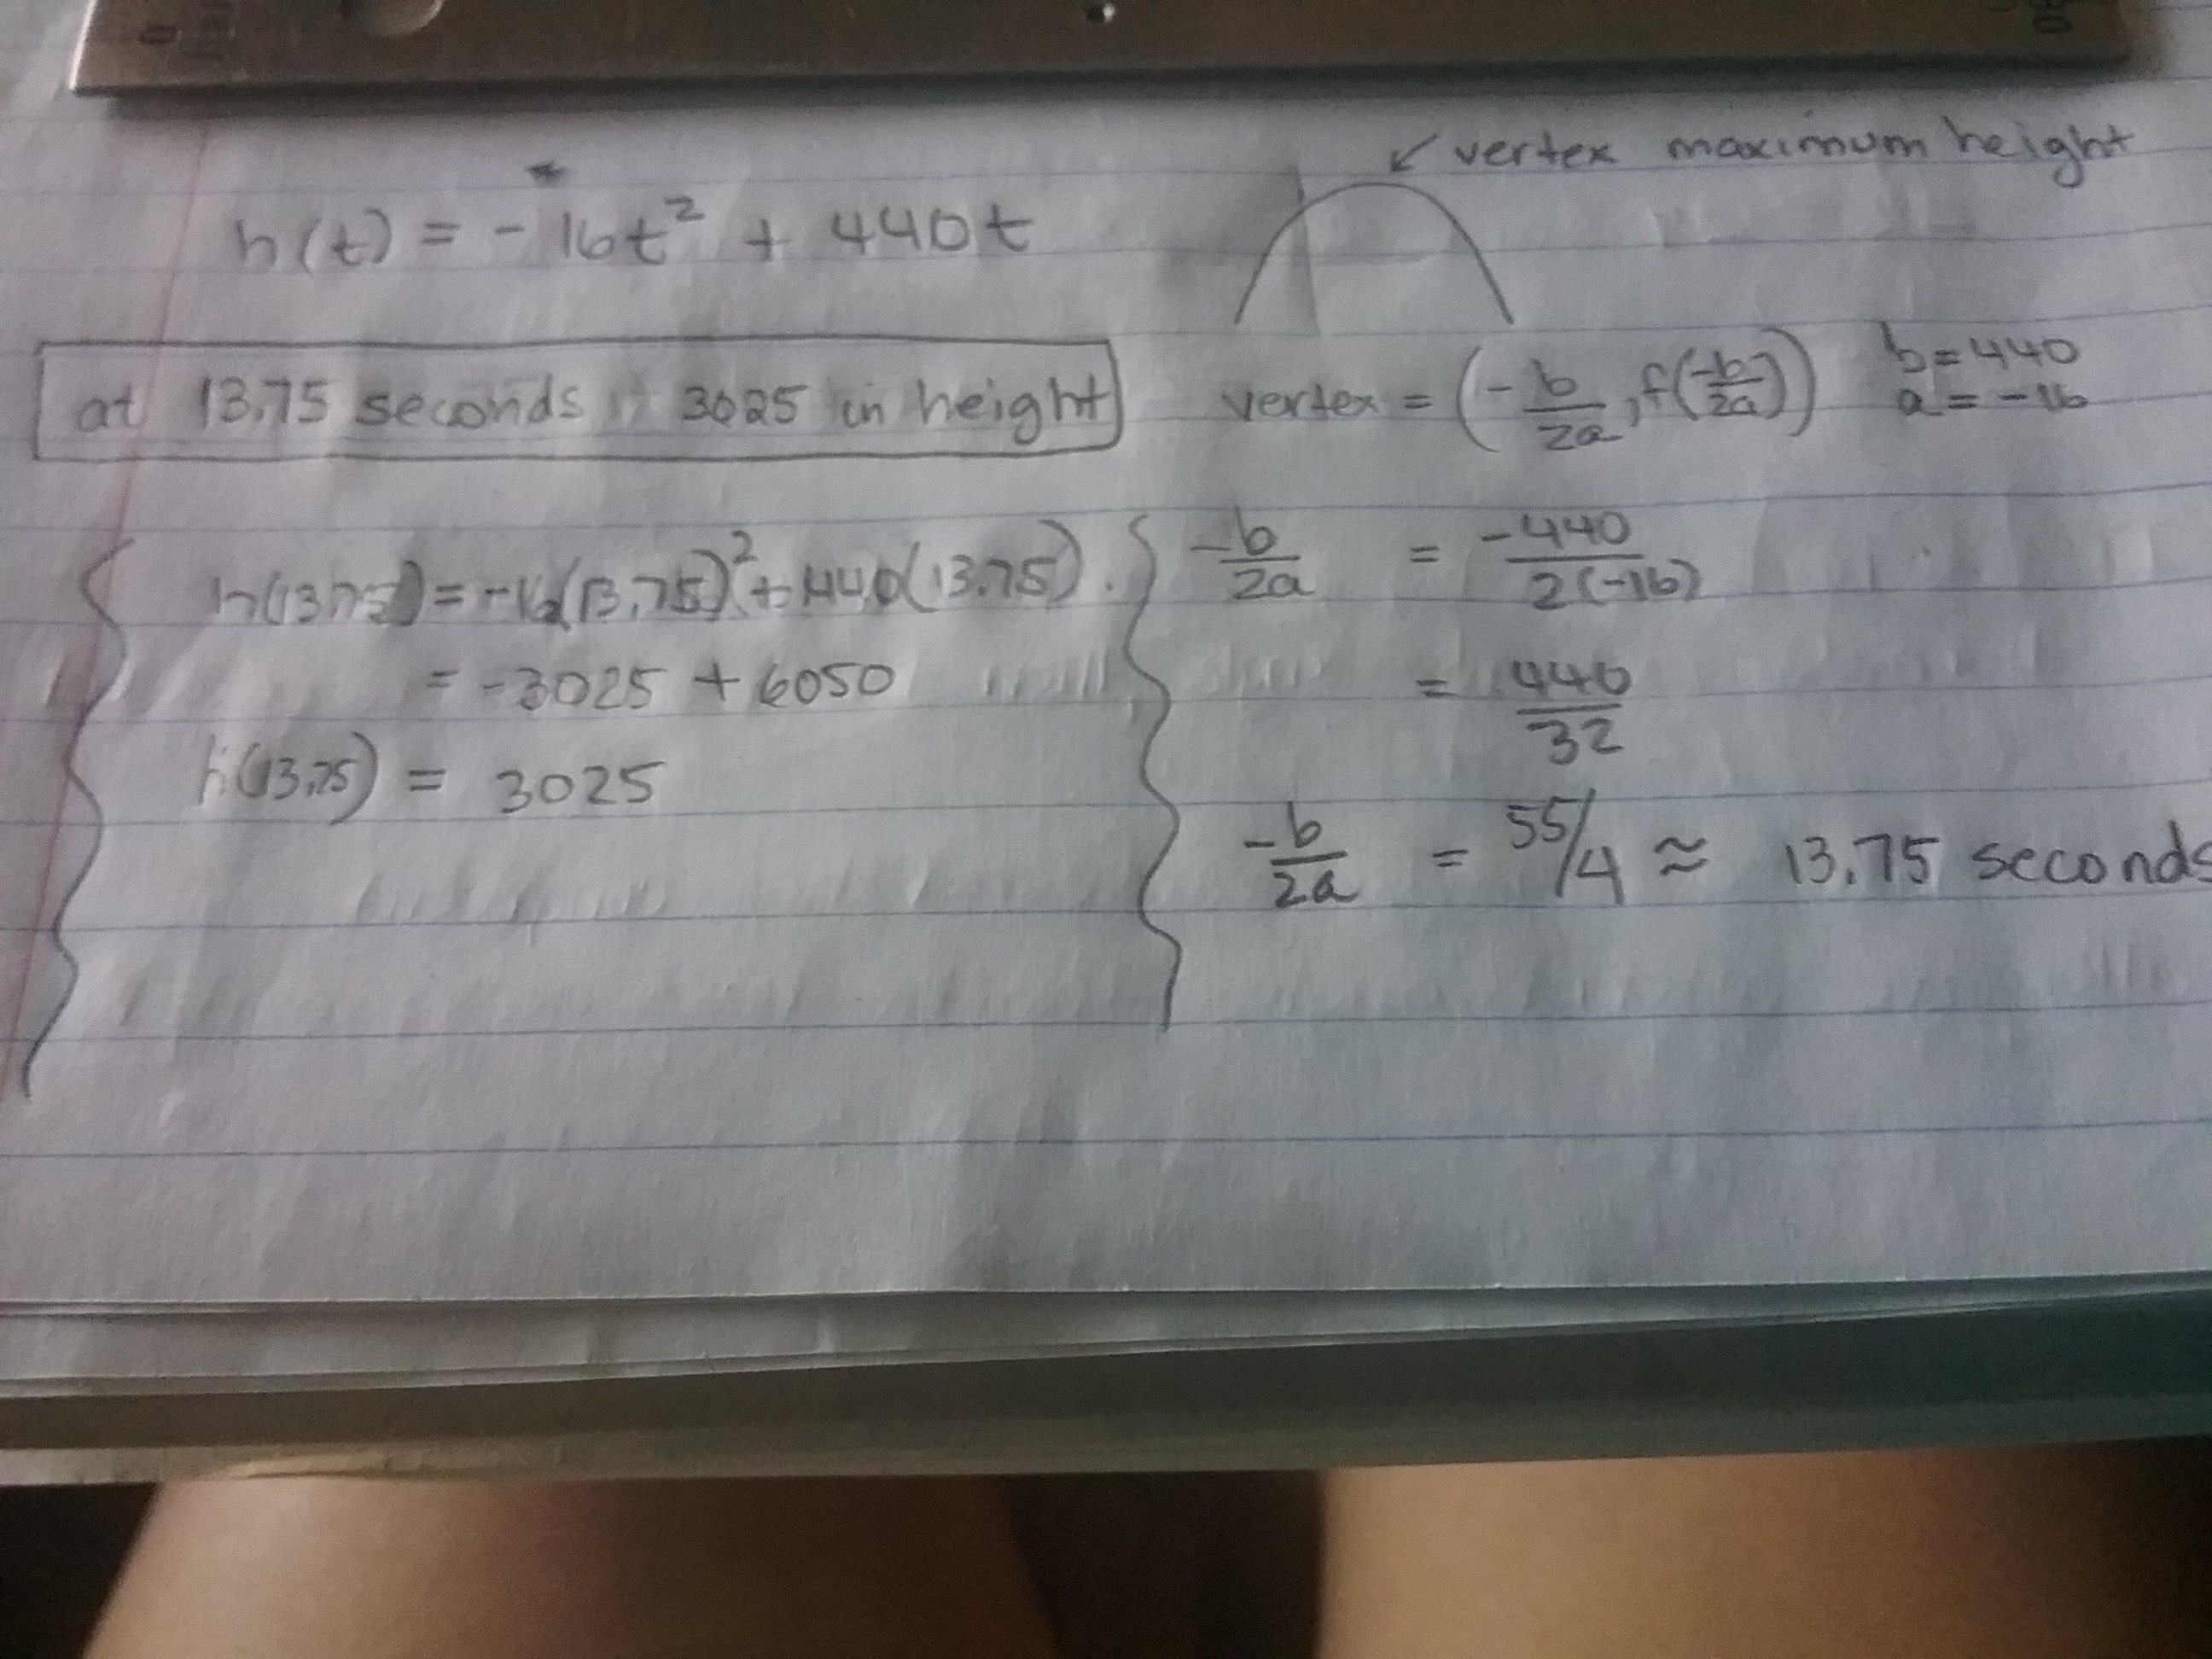 vertex maximum height
h(t) = -16t² + 440t
at 13.75 seconds, 3025 in height
vertex = (-b/2a, f(-b/2a)) b = 440
a = -16
h(13.75) = -16(13.75)² + 440(13.75).
= -3025 + 6050
h(13.75) = 3025
-b/2a = -440/2(-16)
= 440/32
-b/2a = 55/4 ≈ 13.75 seconds